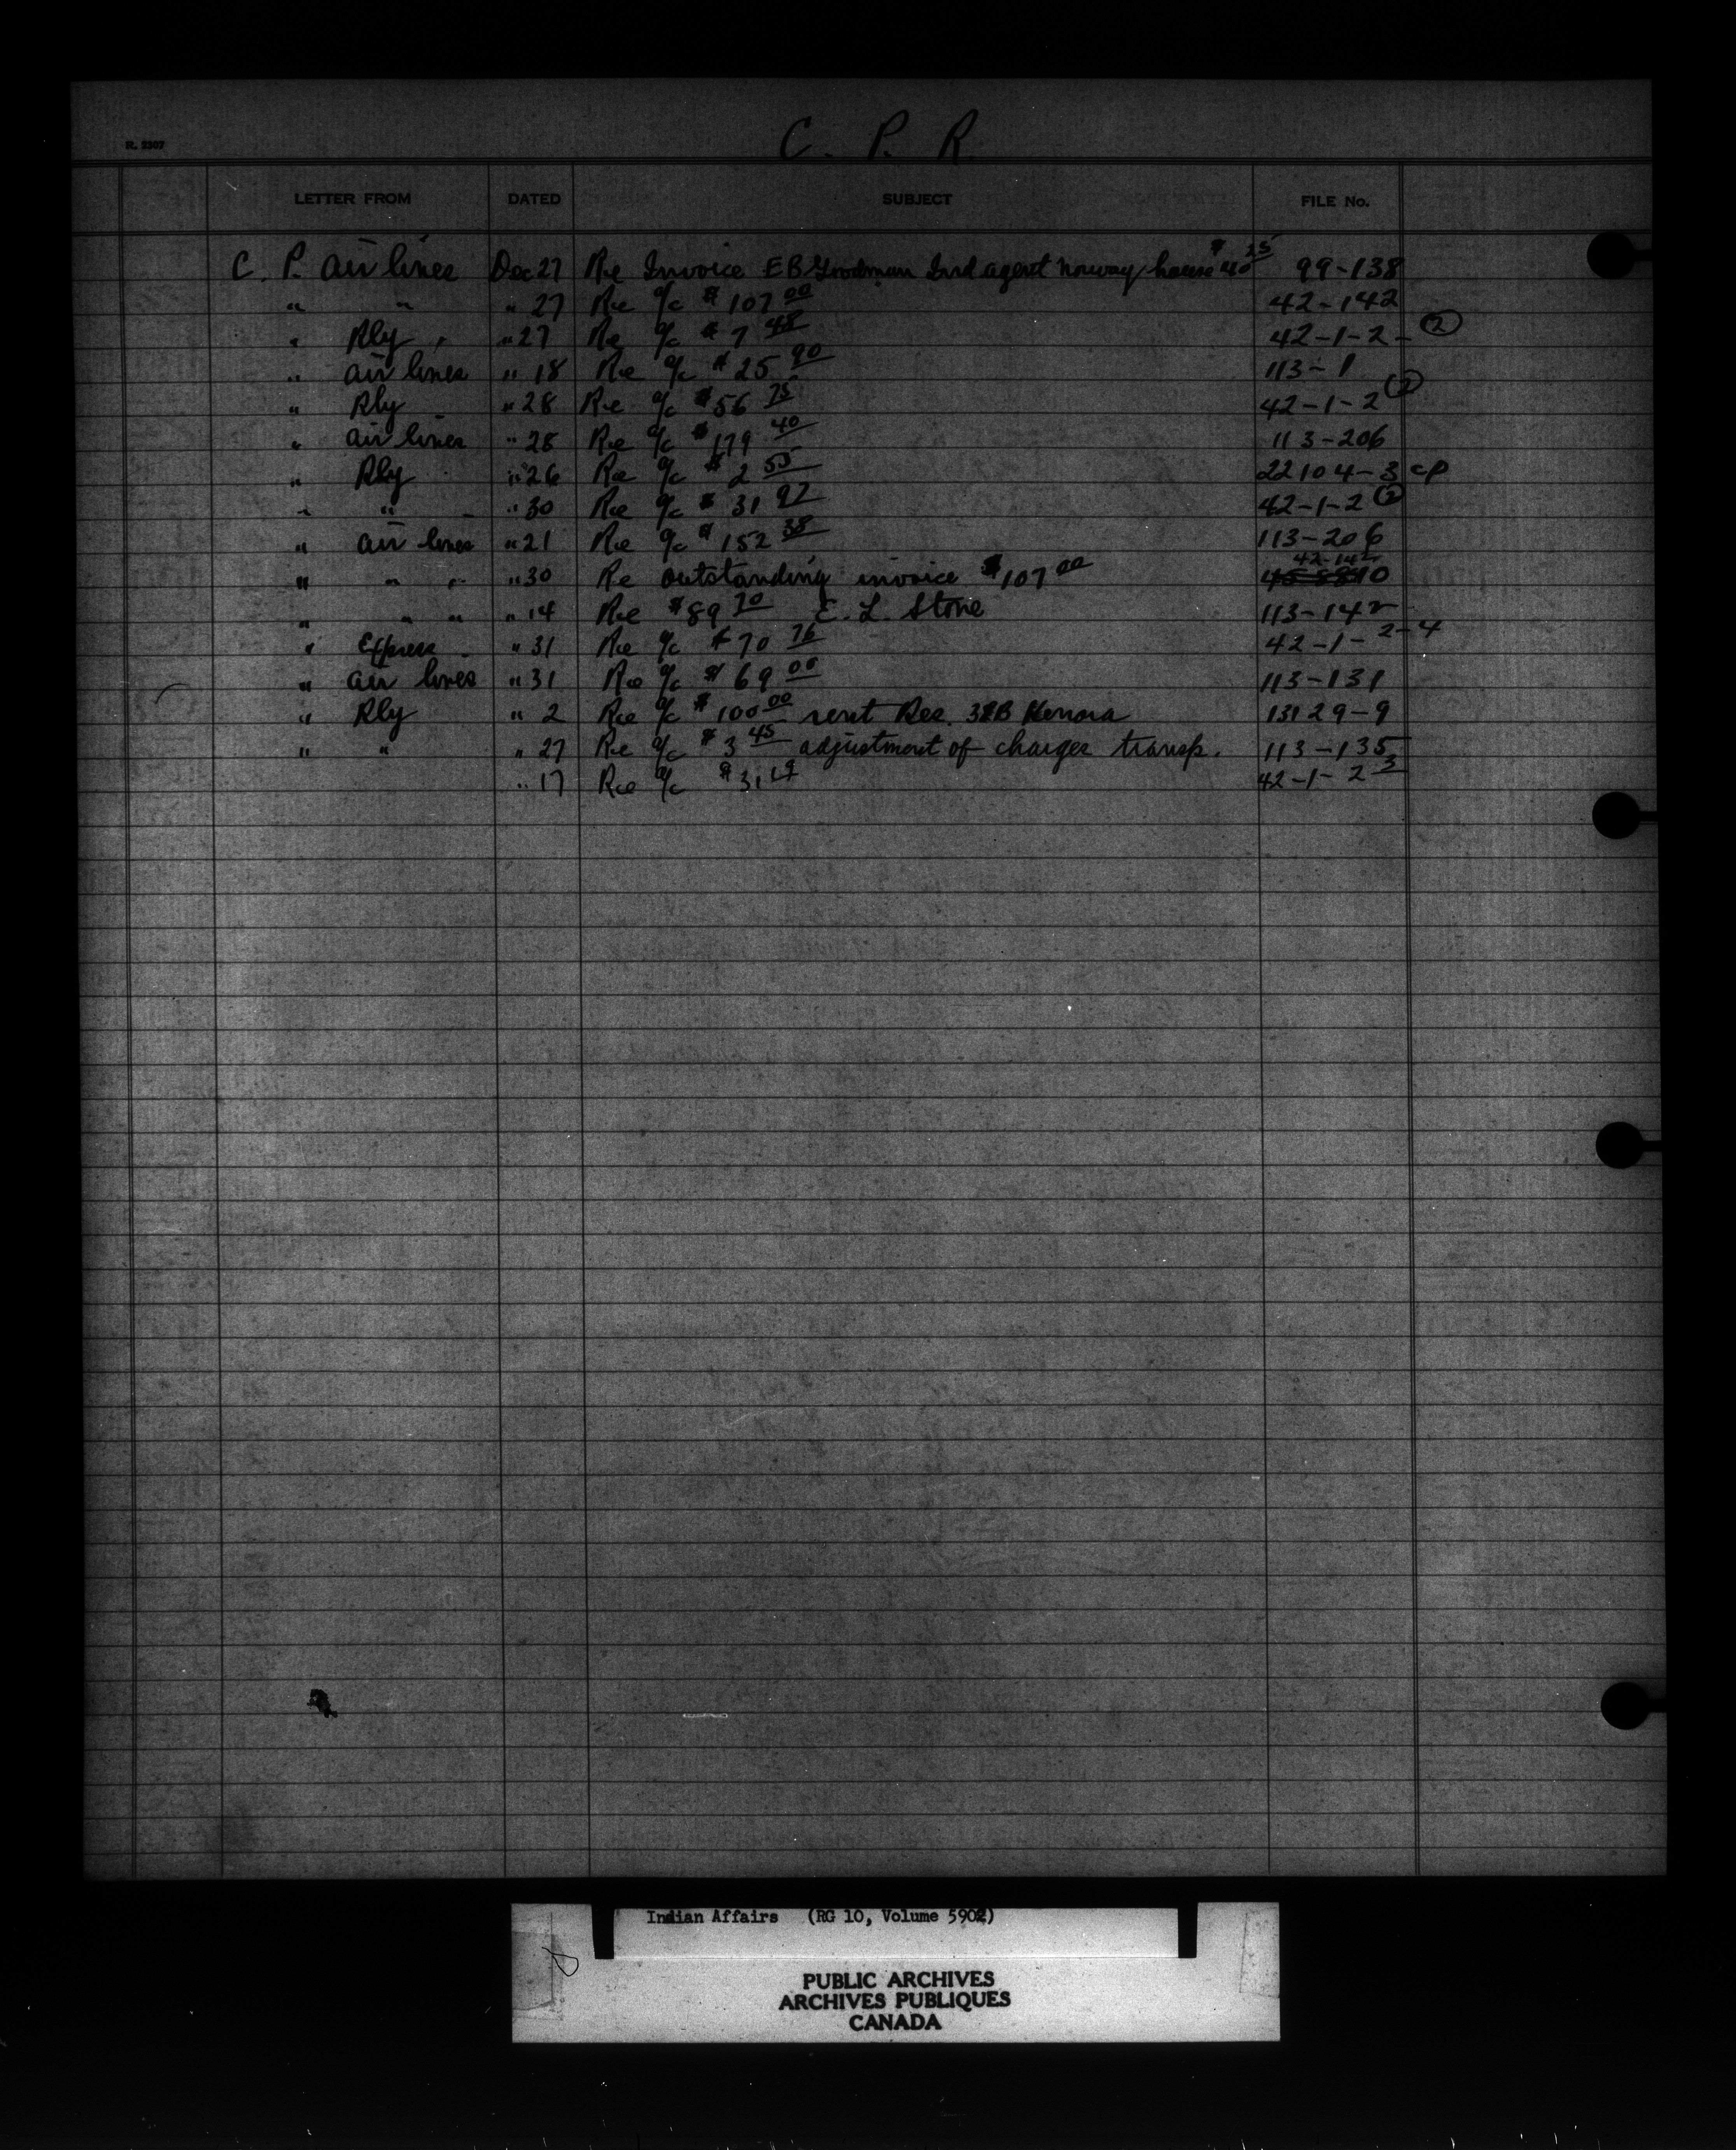 C. P. R.
R. 2307
LETTER FROM DATED SUBJECT FILE No.
C. P. air lines Dec 27 Re Invoice E B Goodman Ind agent Norway house $40 25 99-138
" " " 27 Re a/c $107 00 42-142
" Rly " " 27 Re a/c $7 48 42-1-2- (2)
" air lines " 18 Re a/c $25 90 113-1
" Rly " 28 Re a/c $56 75 42-1-2 (2)
" air lines " 28 Re a/c $179 40 113-206
" Rly " 26 Re a/c $2 55 22104-3 cp
" " " 30 Re a/c $31 92 42-1-2 (2)
" air lines " 21 Re a/c $152 38 113-206
42-142
" " " " 30 Re outstanding invoice $107 00
" " " " 14 Re $89 70 E. L. Stone 113-142
" Express " 31 Re a/c $70 76 42-1-2-4
" air lines " 31 Re a/c $69 00 113-131
" Rly " 2 Re a/c $100 00 rent Res. 38B Kenora 13129-9
" " " 27 Re a/c $3 45 adjustment of charges transp. 113-135
" 17 Re a/c $31 19 42-1-2 3
Indian Affairs (RG 10, Volume 5902)
PUBLIC ARCHIVES
ARCHIVES PUBLIQUES
CANADA